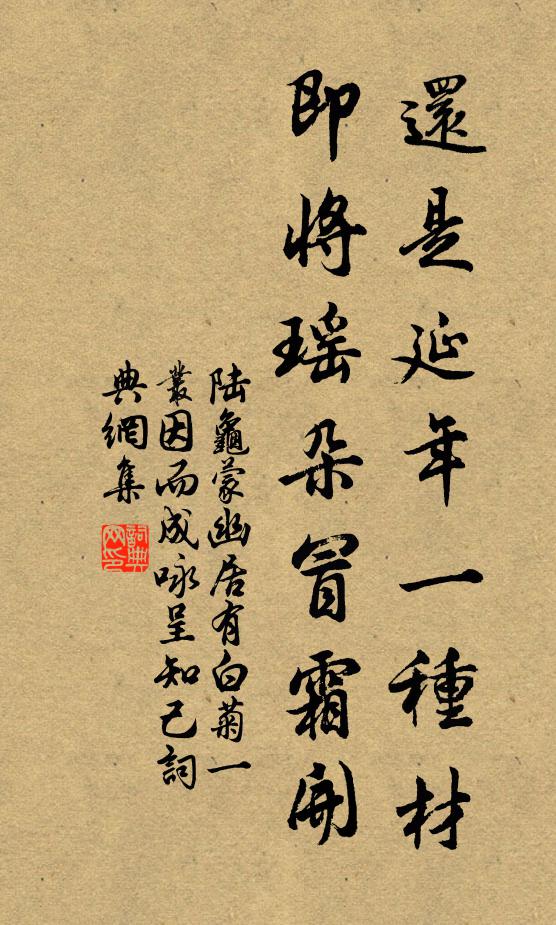 還是延年一種材
即將瑶朵冒霜開
陆龜蒙幽居有白菊一
叢因而成咏呈知己詞
典網集
詞典网印